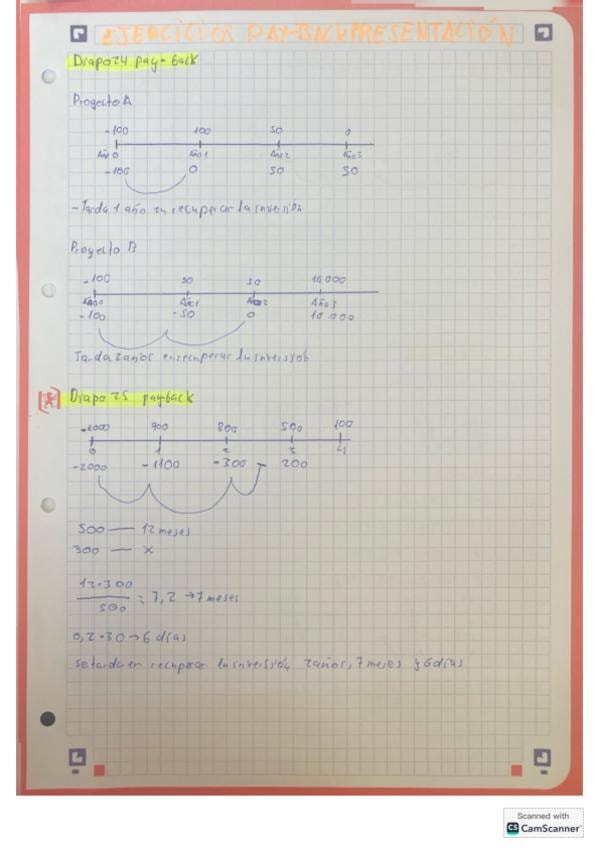 EJERCICIOS PAY-BACK PRESENTACIÓN
Diapo 24 pay-back
Proyecto A
-100 100 50 0
Año 0 Año 1 Año 2 Año 3
-100 0 50 50
- Tarda 1 año en recuperar la inversión
Proyecto B
-100 50 50 10.000
Año 0 Año 1 Año 2 Año 3
-100 -50 0 10.000
Tarda 2 años en recuperar la inversión
[*] Diapo 25 payback
-2000 900 800 500 100
0 1 2 3 4
-2000 -1100 -300 200
500 — 12 meses
300 — x
12·300
500
= 7,2 → 7 meses
0,2·30 → 6 días
se tarda en recuperar la inversión, 2 años, 7 meses y 6 días
Scanned with
CS CamScanner